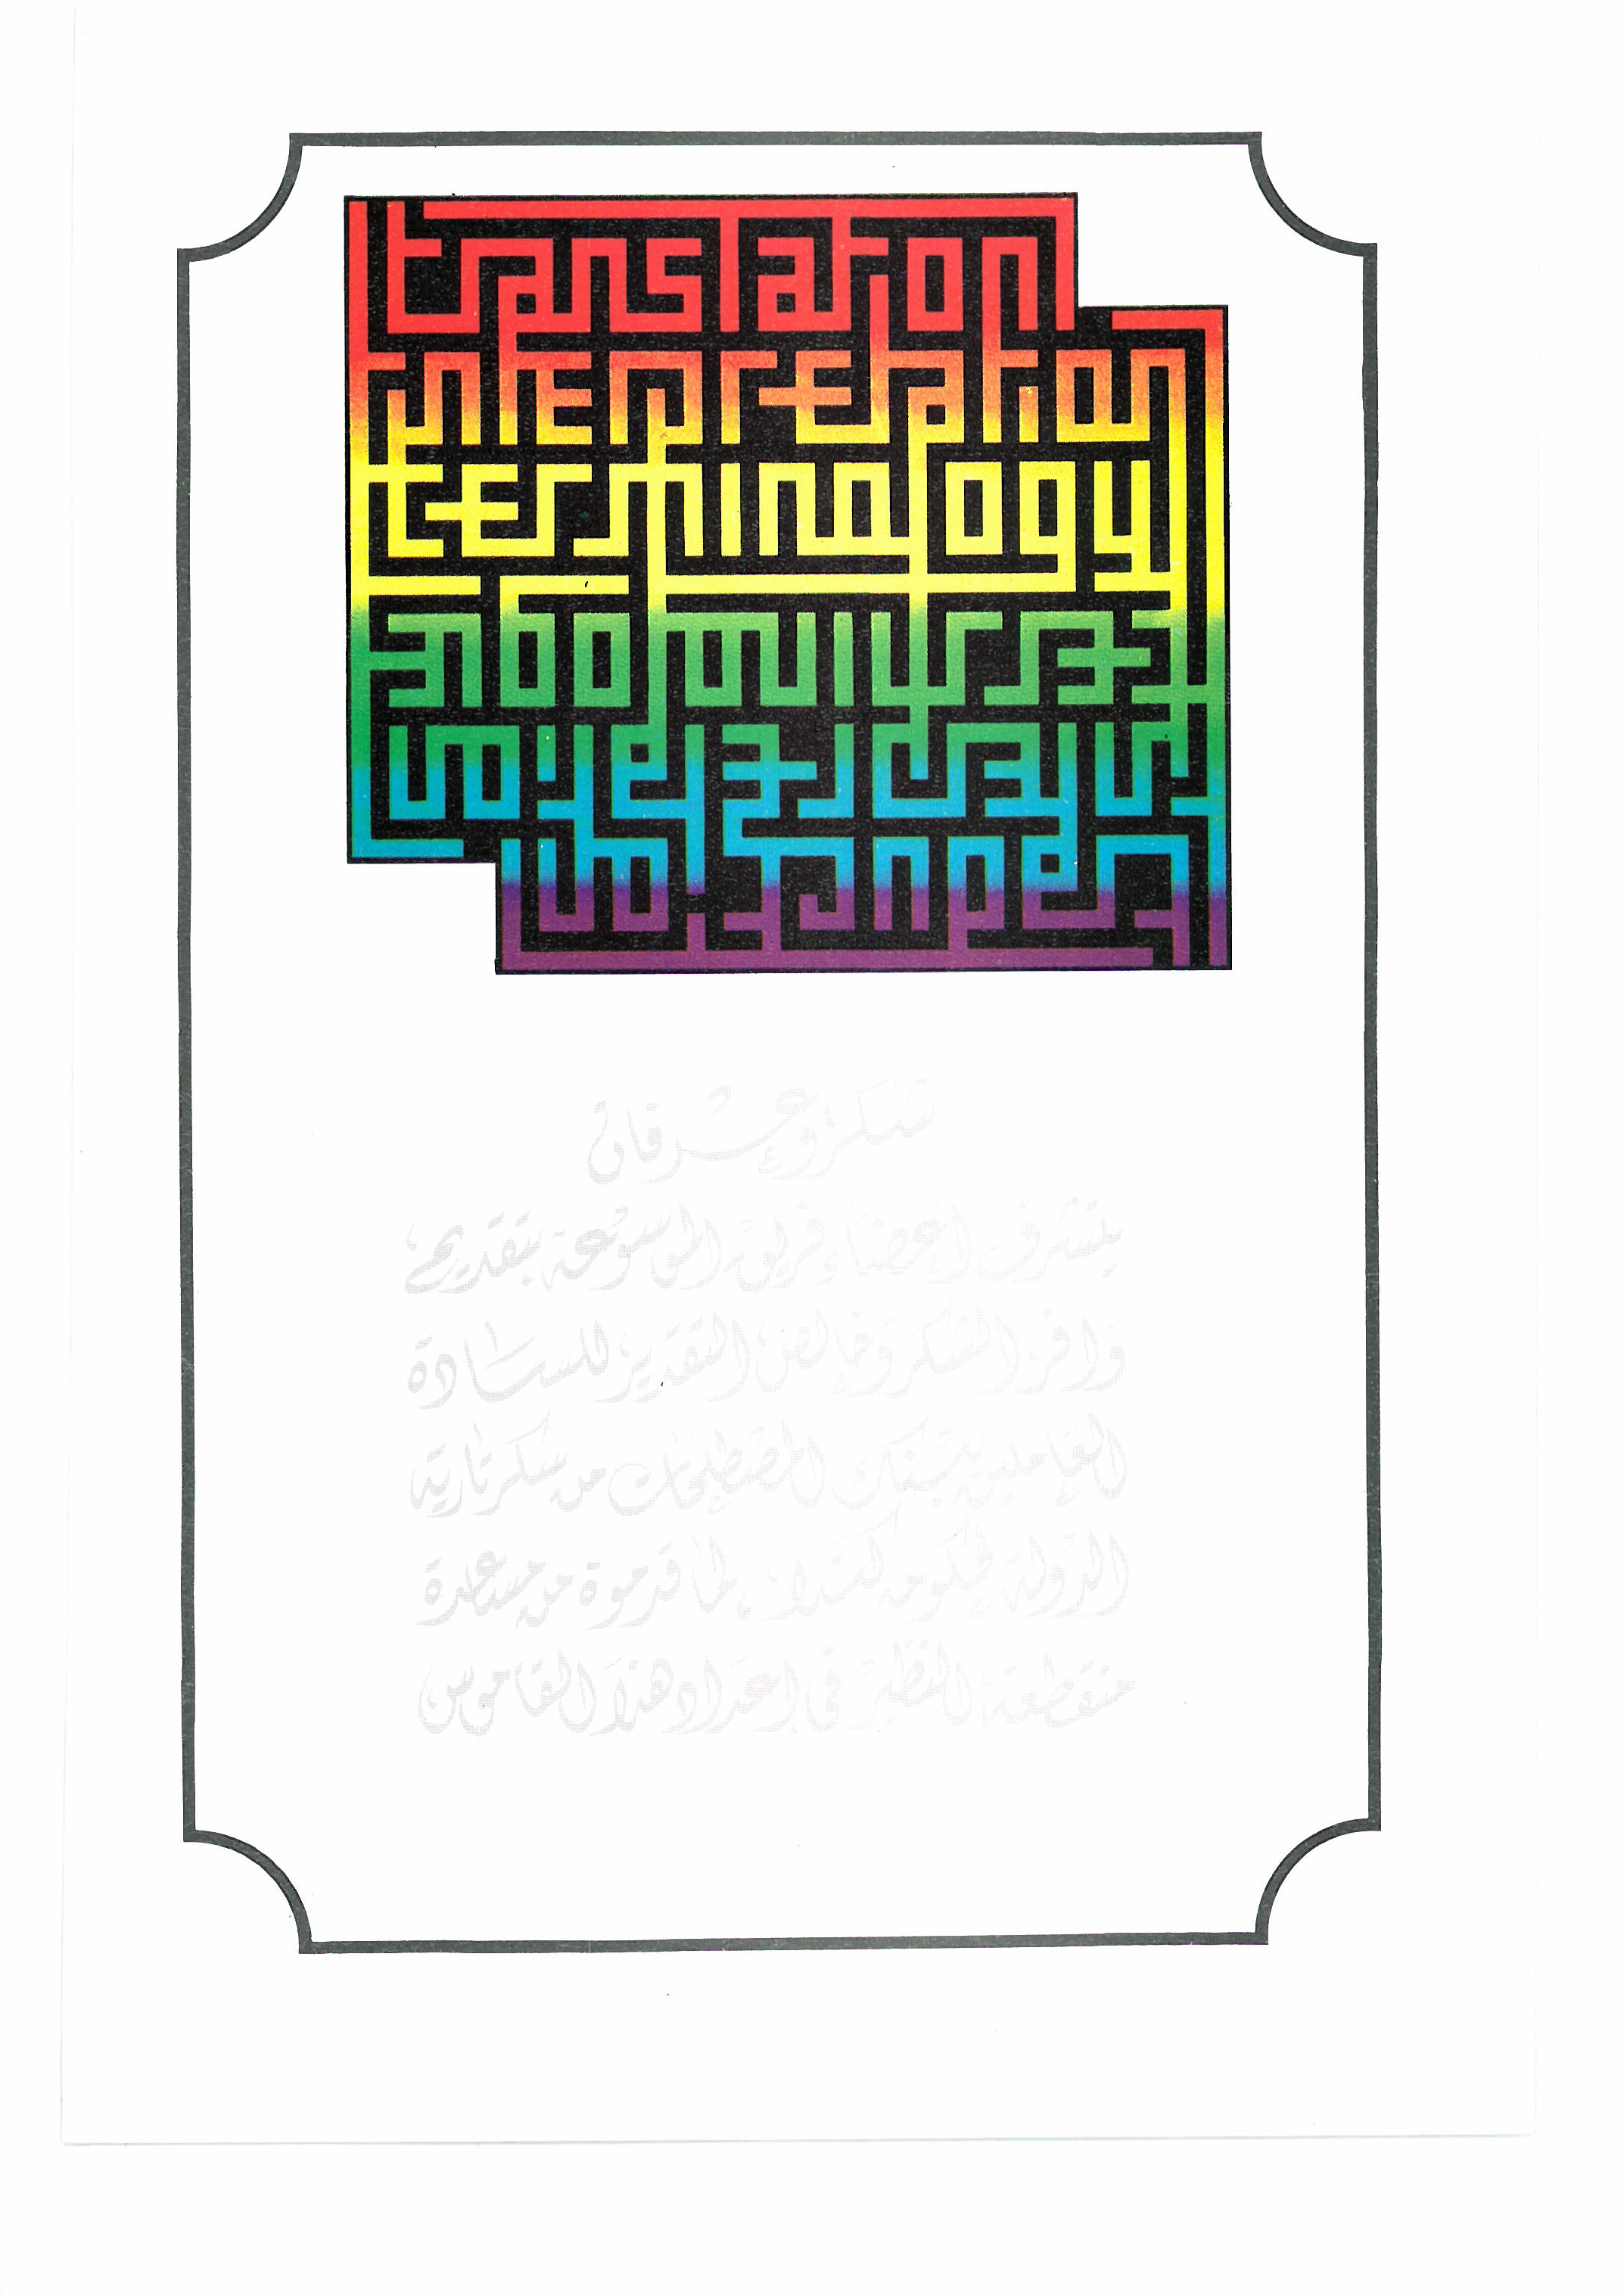 translation
interpretation
terminology
شكر وعرفان
يتشرف أعضاء فريق الموسوعة بتقديم
وافر الشكر وخالص التقدير للسادة
العاملين ببنك المصطلحات من سكرتارية
الدولة لحكومة كندا، لما قدموة من مساعدة
منقطعة النظير في إعداد هذا القاموس